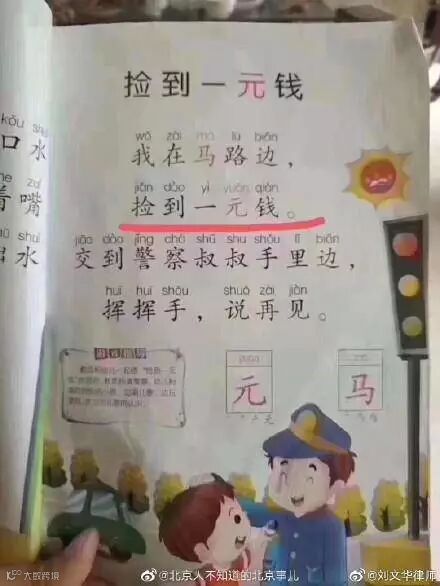 kǒu shu
口水
he zu
着嘴
ū shuǐ
出水
捡到一元钱
wǒ zài mǎ lù biān
我在马路边，
jiǎn dào yì yuán qián
捡到一元钱。
jiāo dào jǐng chá shū shu shǒu lǐ biān
交到警察叔叔手里边，
huī huī shǒu shuō zài jiàn
挥挥手，说再见。
元
马
大数跨境
@北京人不知道的北京事儿
@刘文华律师